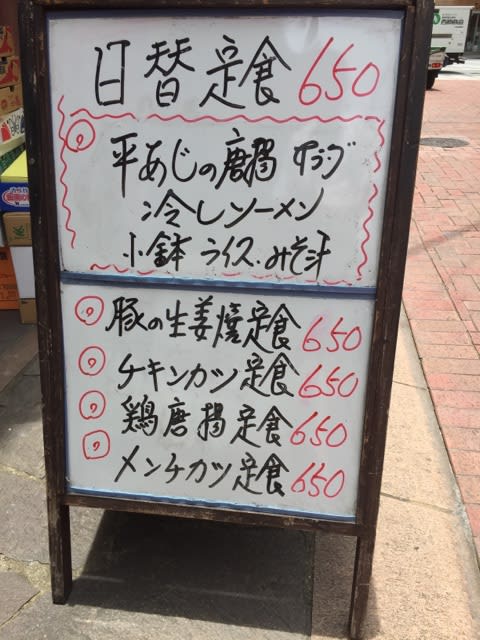 日替定食 650
平あじの唐揚 サラダ
冷しソーメン
小鉢 ライス・みそ汁
豚の生姜焼定食 650
チキンカツ定食 650
鶏唐揚定食 650
メンチカツ定食 650